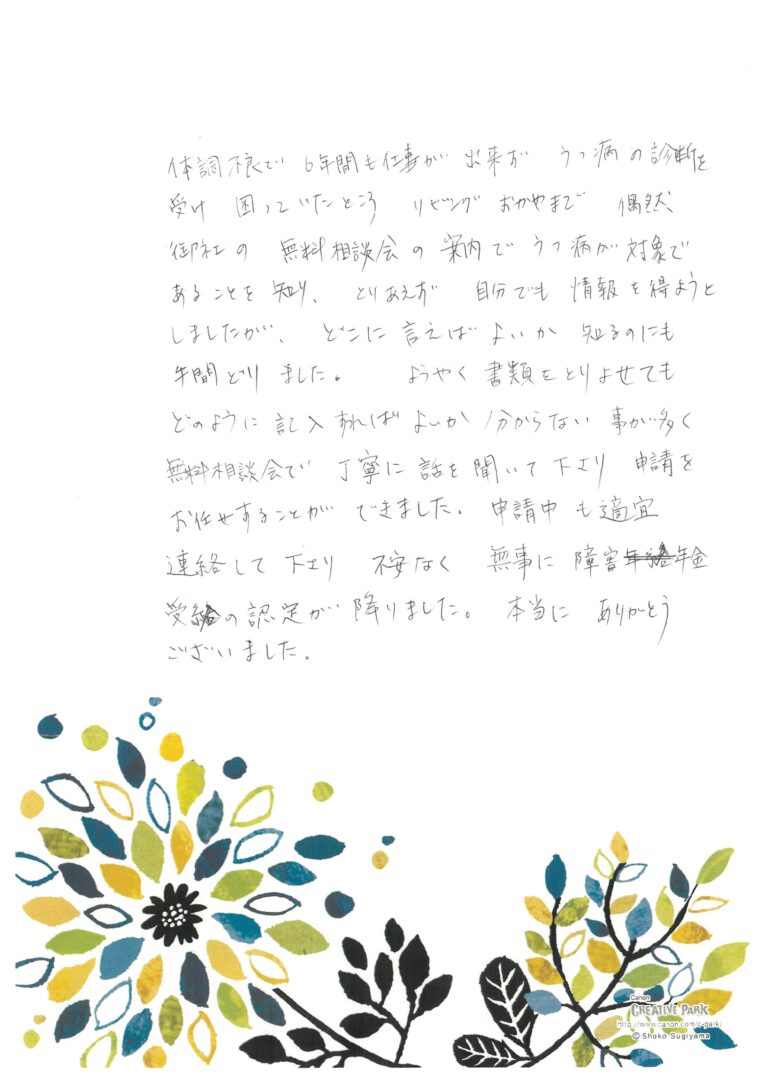 体調不良で 6年間も仕事が 出来ず うつ病の診断を
受け 困っていたところ リビング おかやまで 偶然、
御社の 無料相談会の案内で うつ病が対象で
あることを 知り、 とりあえず 自分でも 情報を得ようと
しましたが、 どこに言えば よいか 知るのにも
手間どり ました。 ようやく 書類をとりよせても
どのように 記入すれば よいか 分からない 事が多く
無料相談会で 丁寧に 話を 聞いて 下さり 申請を
お任せすることが できました。 申請中も適宜
連絡して 下さり 不安なく 無事に 障害年金
受給の認定が 降りました。 本当に ありがとう
ございました。
Canon
CREATIVE PARK
http://www.canon.com/c-park/
© Shoko Sugiyama